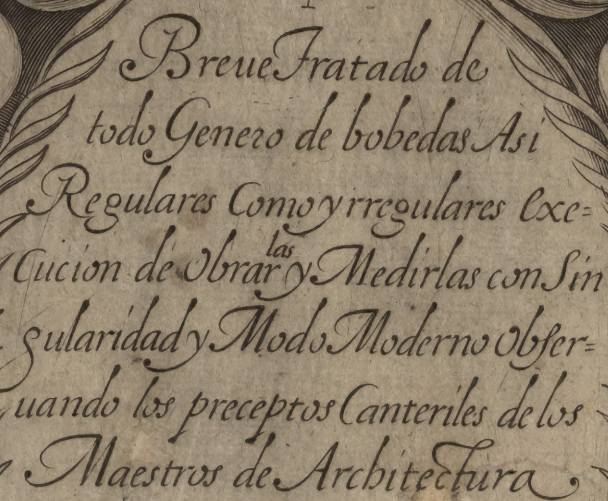 Breue Tratado de
todo Genero de bobedas Asi
Regulares Como yrregulares exe=
Cucion de Obrarlas y Medirlas con Sin
gularidad y Modo Moderno Obser=
uando los preceptos Canteriles de los
Maestros de Architectura.